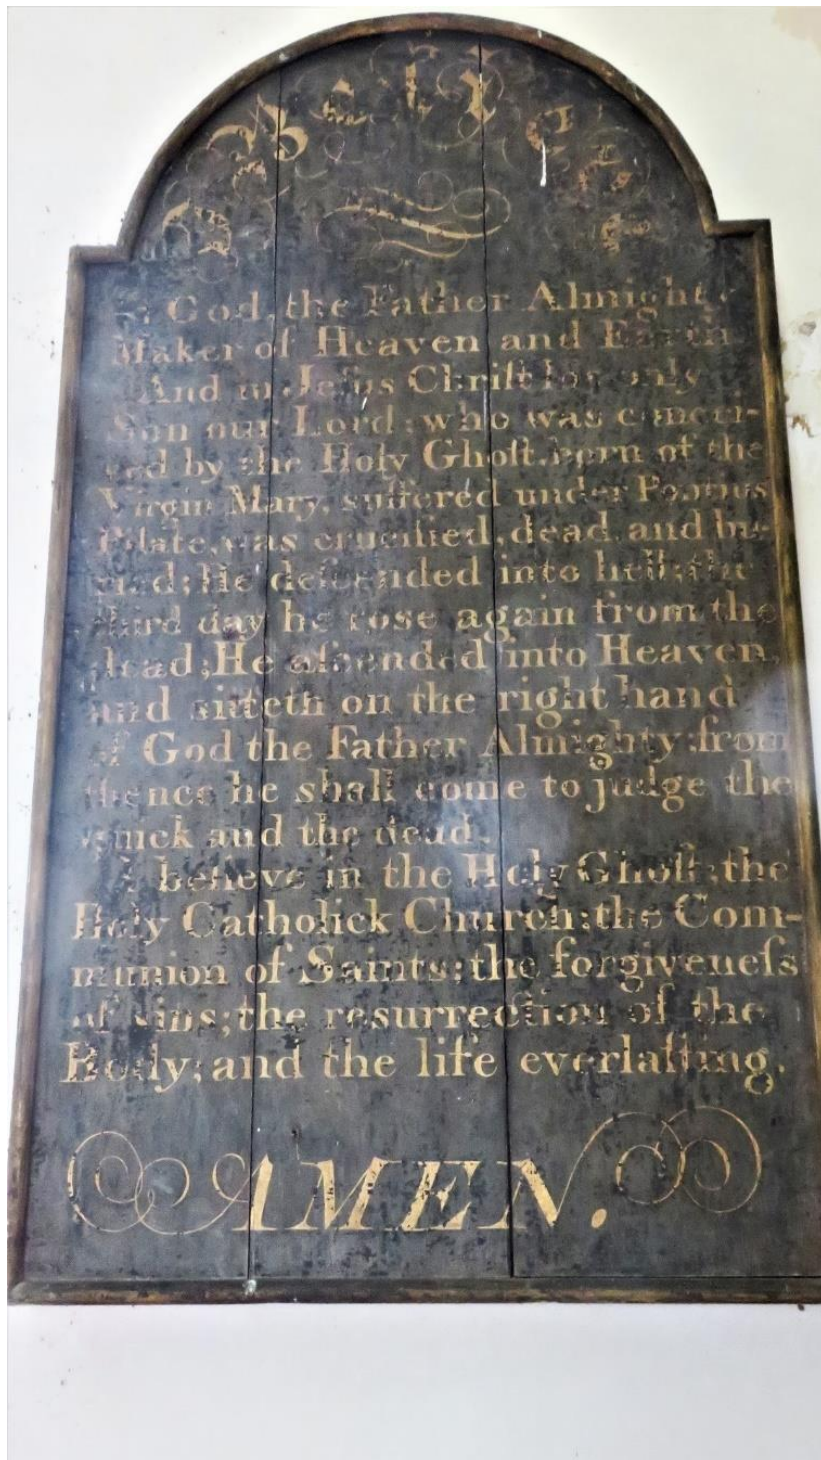 I Believe
in God, the Father Almighty
Maker of Heaven and Earth
And in Jeſus Chriſt his only
Son our Lord; who was concei-
ved by the Holy Ghoſt, born of the
Virgin Mary, suffered under Pontius
Pilate, was crucified, dead, and bu-
ried; He deſcended into hell; the
third day he rose again from the
dead; He aſcended into Heaven,
and sitteth on the right hand
of God the Father Almighty; from
thence he shall come to judge the
quick and the dead.
I believe in the Holy Ghoſt; the
Holy Catholick Church; the Com-
munion of Saints; the forgiveneſs
of sins; the resurrection of the
Body; and the life everlaſting.
AMEN.